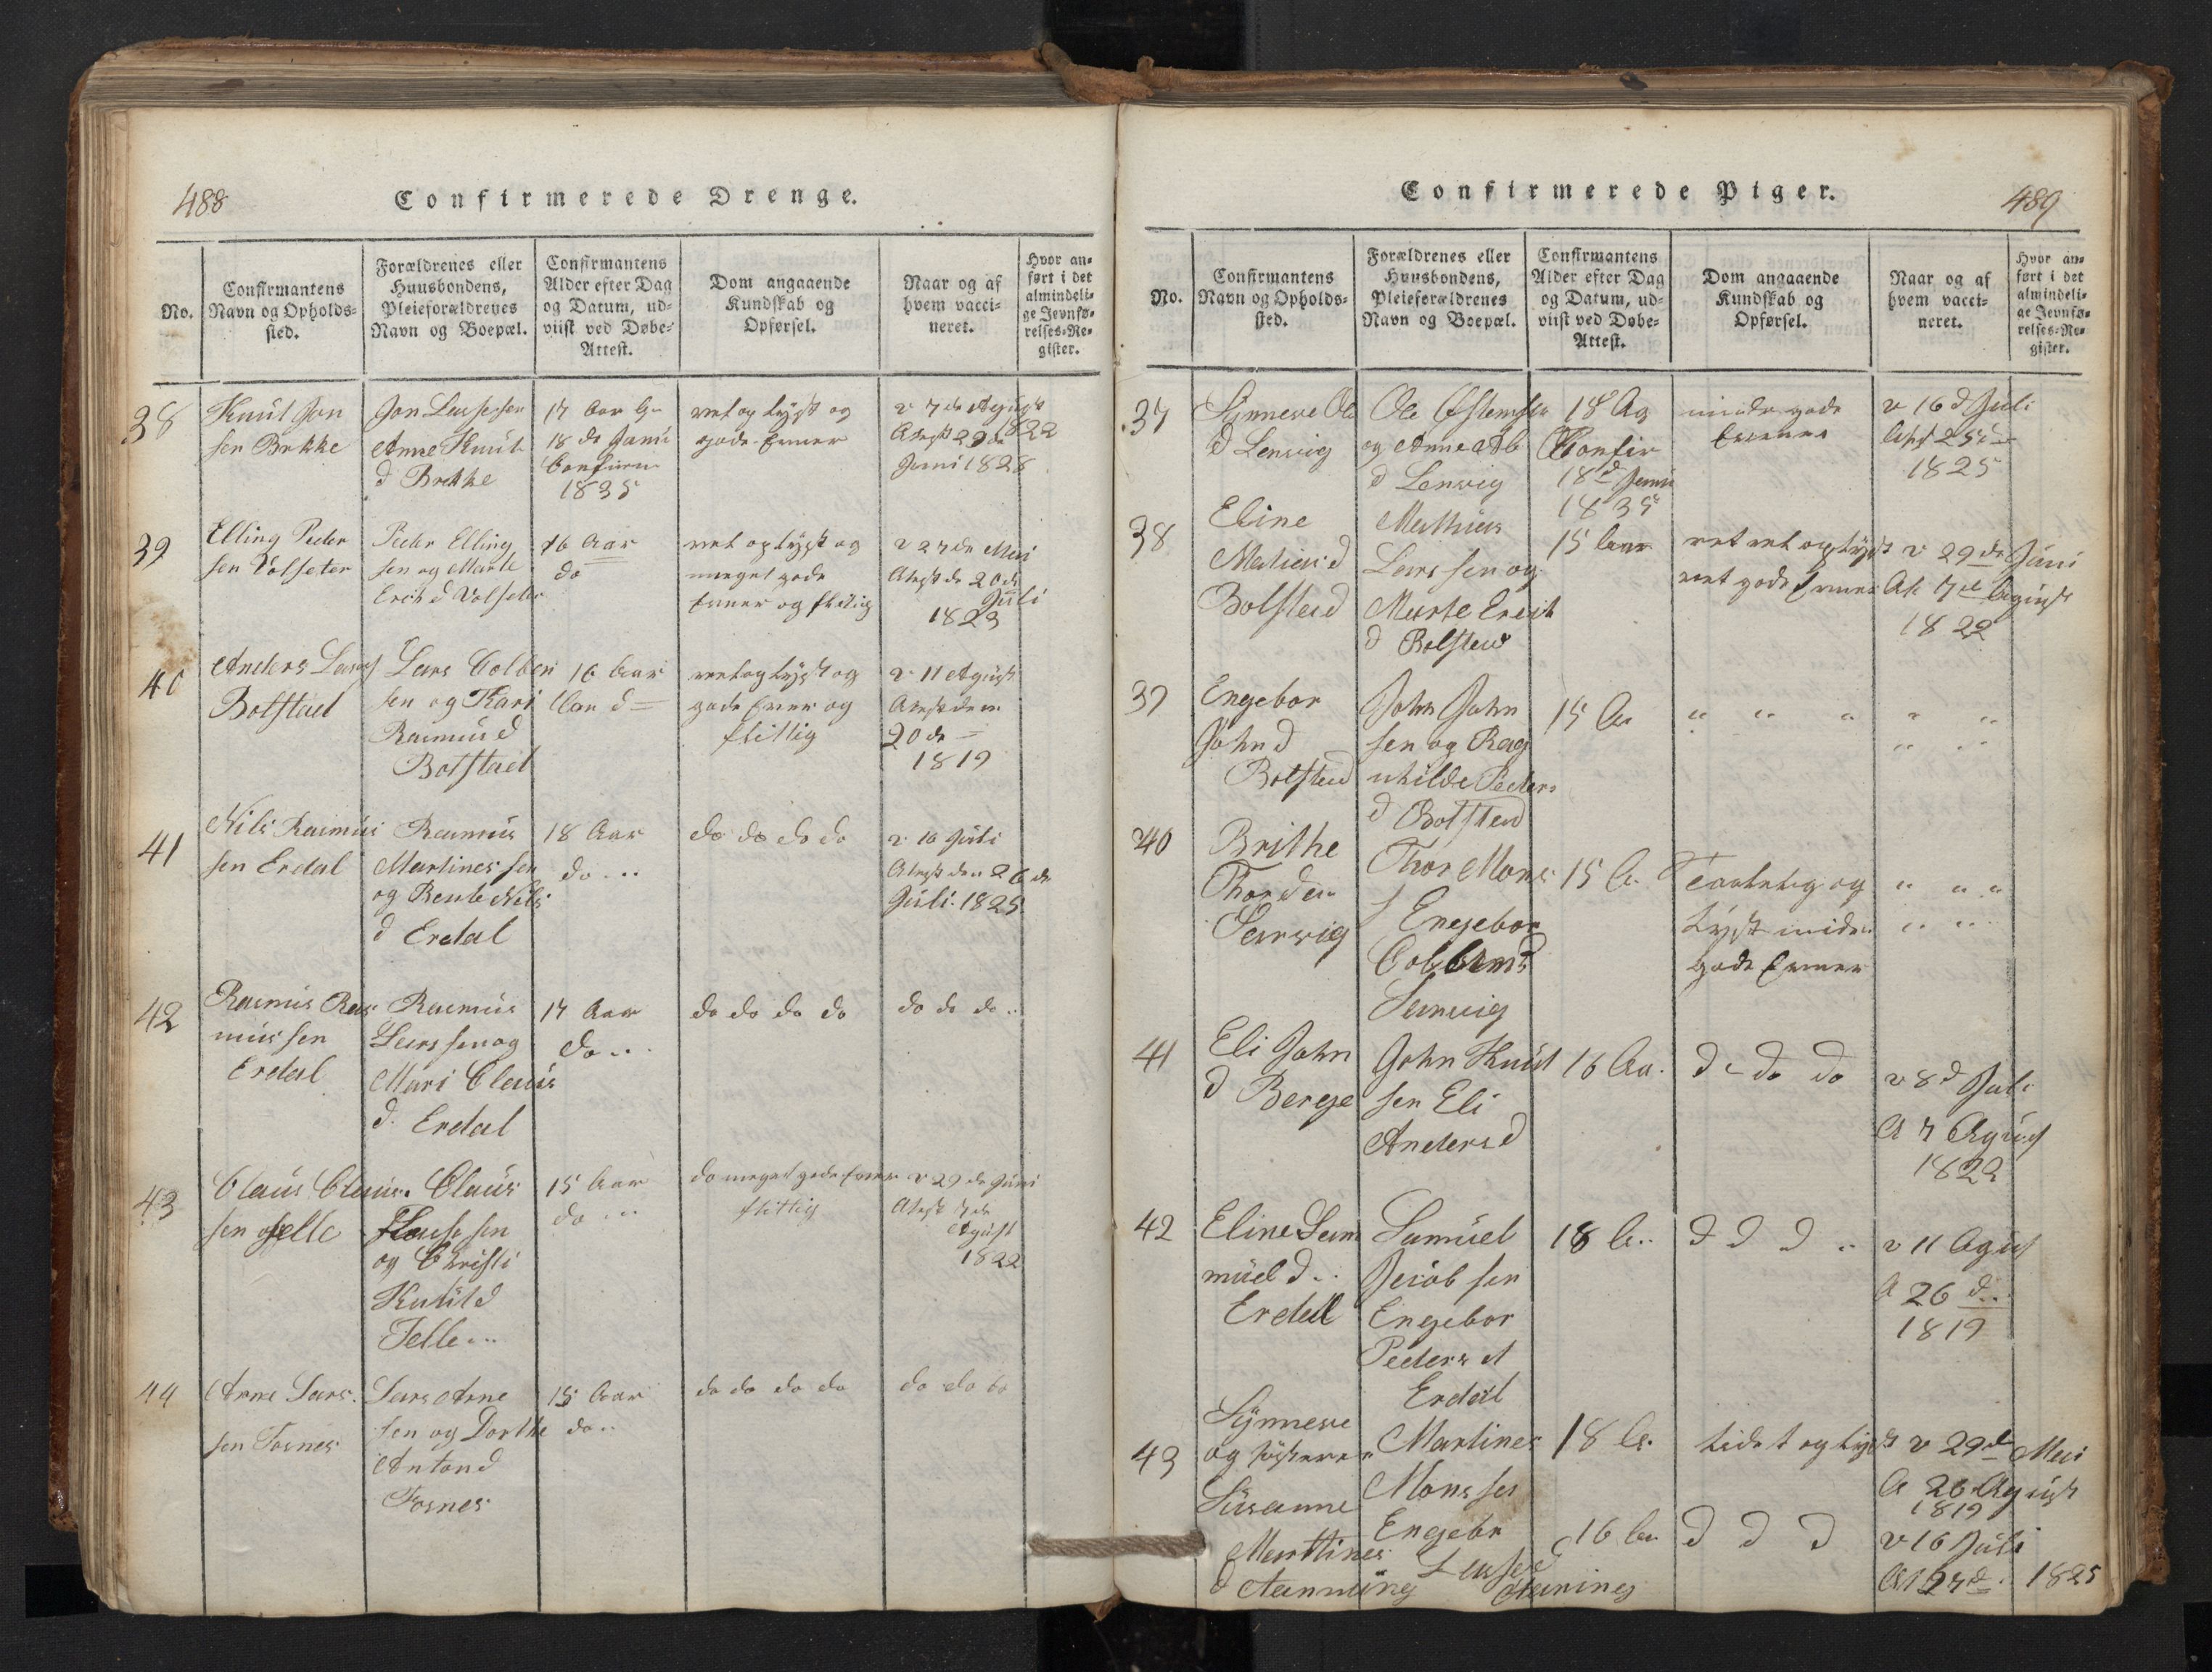 488
Confirmerede Drenge.
No.
Confirmantens
Navn og Opholds-
sted.
Forældrenes eller
Huusbondens,
Pleieforældrenes
Navn og Boepæl.
Confirmantens
Alder efter Dag
og Datum, ud-
viist ved Døbe-
Attest.
Dom angaaende
Kundskab og
Opførsel.
Naar og af
hvem vacci-
neret.
Hvor an-
ført i det
almindeli-
ge Jevnfø-
relses-Re-
gister.
38
Knut Jon
sen Brekke
Jon Lassesen
Anne Knut
d Brekke
17 Aar
18 de Juni
Confirm
1835
ret og lyst og
gode Evner
v 7 de Agust
Atest 29 de 1822
Juni 1828
39
Elling Peder
sen Volseter
Peder Elling
sen og Marte
Erik d Volseter
16 Aar
do
ret og lyst og
meget gode
Evner og flitig
v 27 de Mai
Atest de 20 de
Juli
1823
40
Anders Lars
Botstad
Lars Colben
sen og Kari
Rasmus d
Botstad
16 Aar
Con d
ret og lyst og
gode Evner og
flittig
v 11 Agust
Atest den
20 de
1819
41
Nils Rasmus
sen Erdal
Rasmus
Martines sen
og Bente Nils
d Erdal
18 Aar
do
do do do do
v 16 Juli
Atest den 26 de
Juli 1825
42
Rasmus Ras
mus sen
Erdal
Rasmus
Lars sen og
Mari Claus
d. Erdal
17 Aar
do
do do do do
do do do
43
Claus Claus
sen Felle
Claus
Lasse sen
og Christi
Knut d
Felle
15 Aar
do
do meget gode Evner
flittig
v 29 de Juni
Atest 7 de
Agust
1822
44
Arne Lars
sen Fosnes
Lars Arne
sen og Dorthe
Anton d
Fosnes
15 Aar
do
do do do do
do do do
Confirmerede Piger.
489
No.
Confirmantens
Navn og Opholds-
sted.
Forældrenes eller
Huusbondens,
Pleieforældrenes
Navn og Boepæl.
Confirmantens
Alder efter Dag
og Datum, ud-
viist ved Døbe-
Attest.
Dom angaaende
Kundskab og
Opførsel.
Naar og af
hvem vacci-
neret.
Hvor an-
ført i det
almindeli-
ge Jevnfø-
relses-Re-
gister.
37
Synneve Ole
d Lenvig
Ole Østensen
og Anne
d Lenvig
18 Aa
Confir
18 d Juni
1835
mindre gode
Evner
v 16 d Juli
1825
38
Eline
Matias d
Bolsted
Mathias
Lars sen og
Marte Erick
d Bolsted
15 Aar
ret og lyst
ret gode Evner
v 29 de Juni
At 7 de Agust
1822
39
Engebor
John d
Botsted
John John
sen og Rag
nhilde Peders
d Botsted
15 Aa
" " " " "
" "
40
Brithe
Thor den
Lenvig
Thor Mons
Engebor
d
Lenvig
15 A
og
lyst mider
gode Evner
" " "
" "
41
Eli John
d Berge
John Knut
sen Eli
Anders d
16 Aa.
d do do
v 8 d Juli
A 7 Agust
1822
42
Eline Sam
muel d
Erdal
Samuel
Jacob sen
Engebor
Peders d
Erdal
18 A
d d d
v 11 Agust
A 26 d
1819
43
Synneve
og søsteren
Susanne
Marttines
d Hanning
Martines
Mons sen
Engebr
Lasse d
Haning
18 A.
lidt og lyst
v 29 de Mai
A 26 Agust
1819
16 Aa
d d d
v 16 Juli
At 27 d. 1825